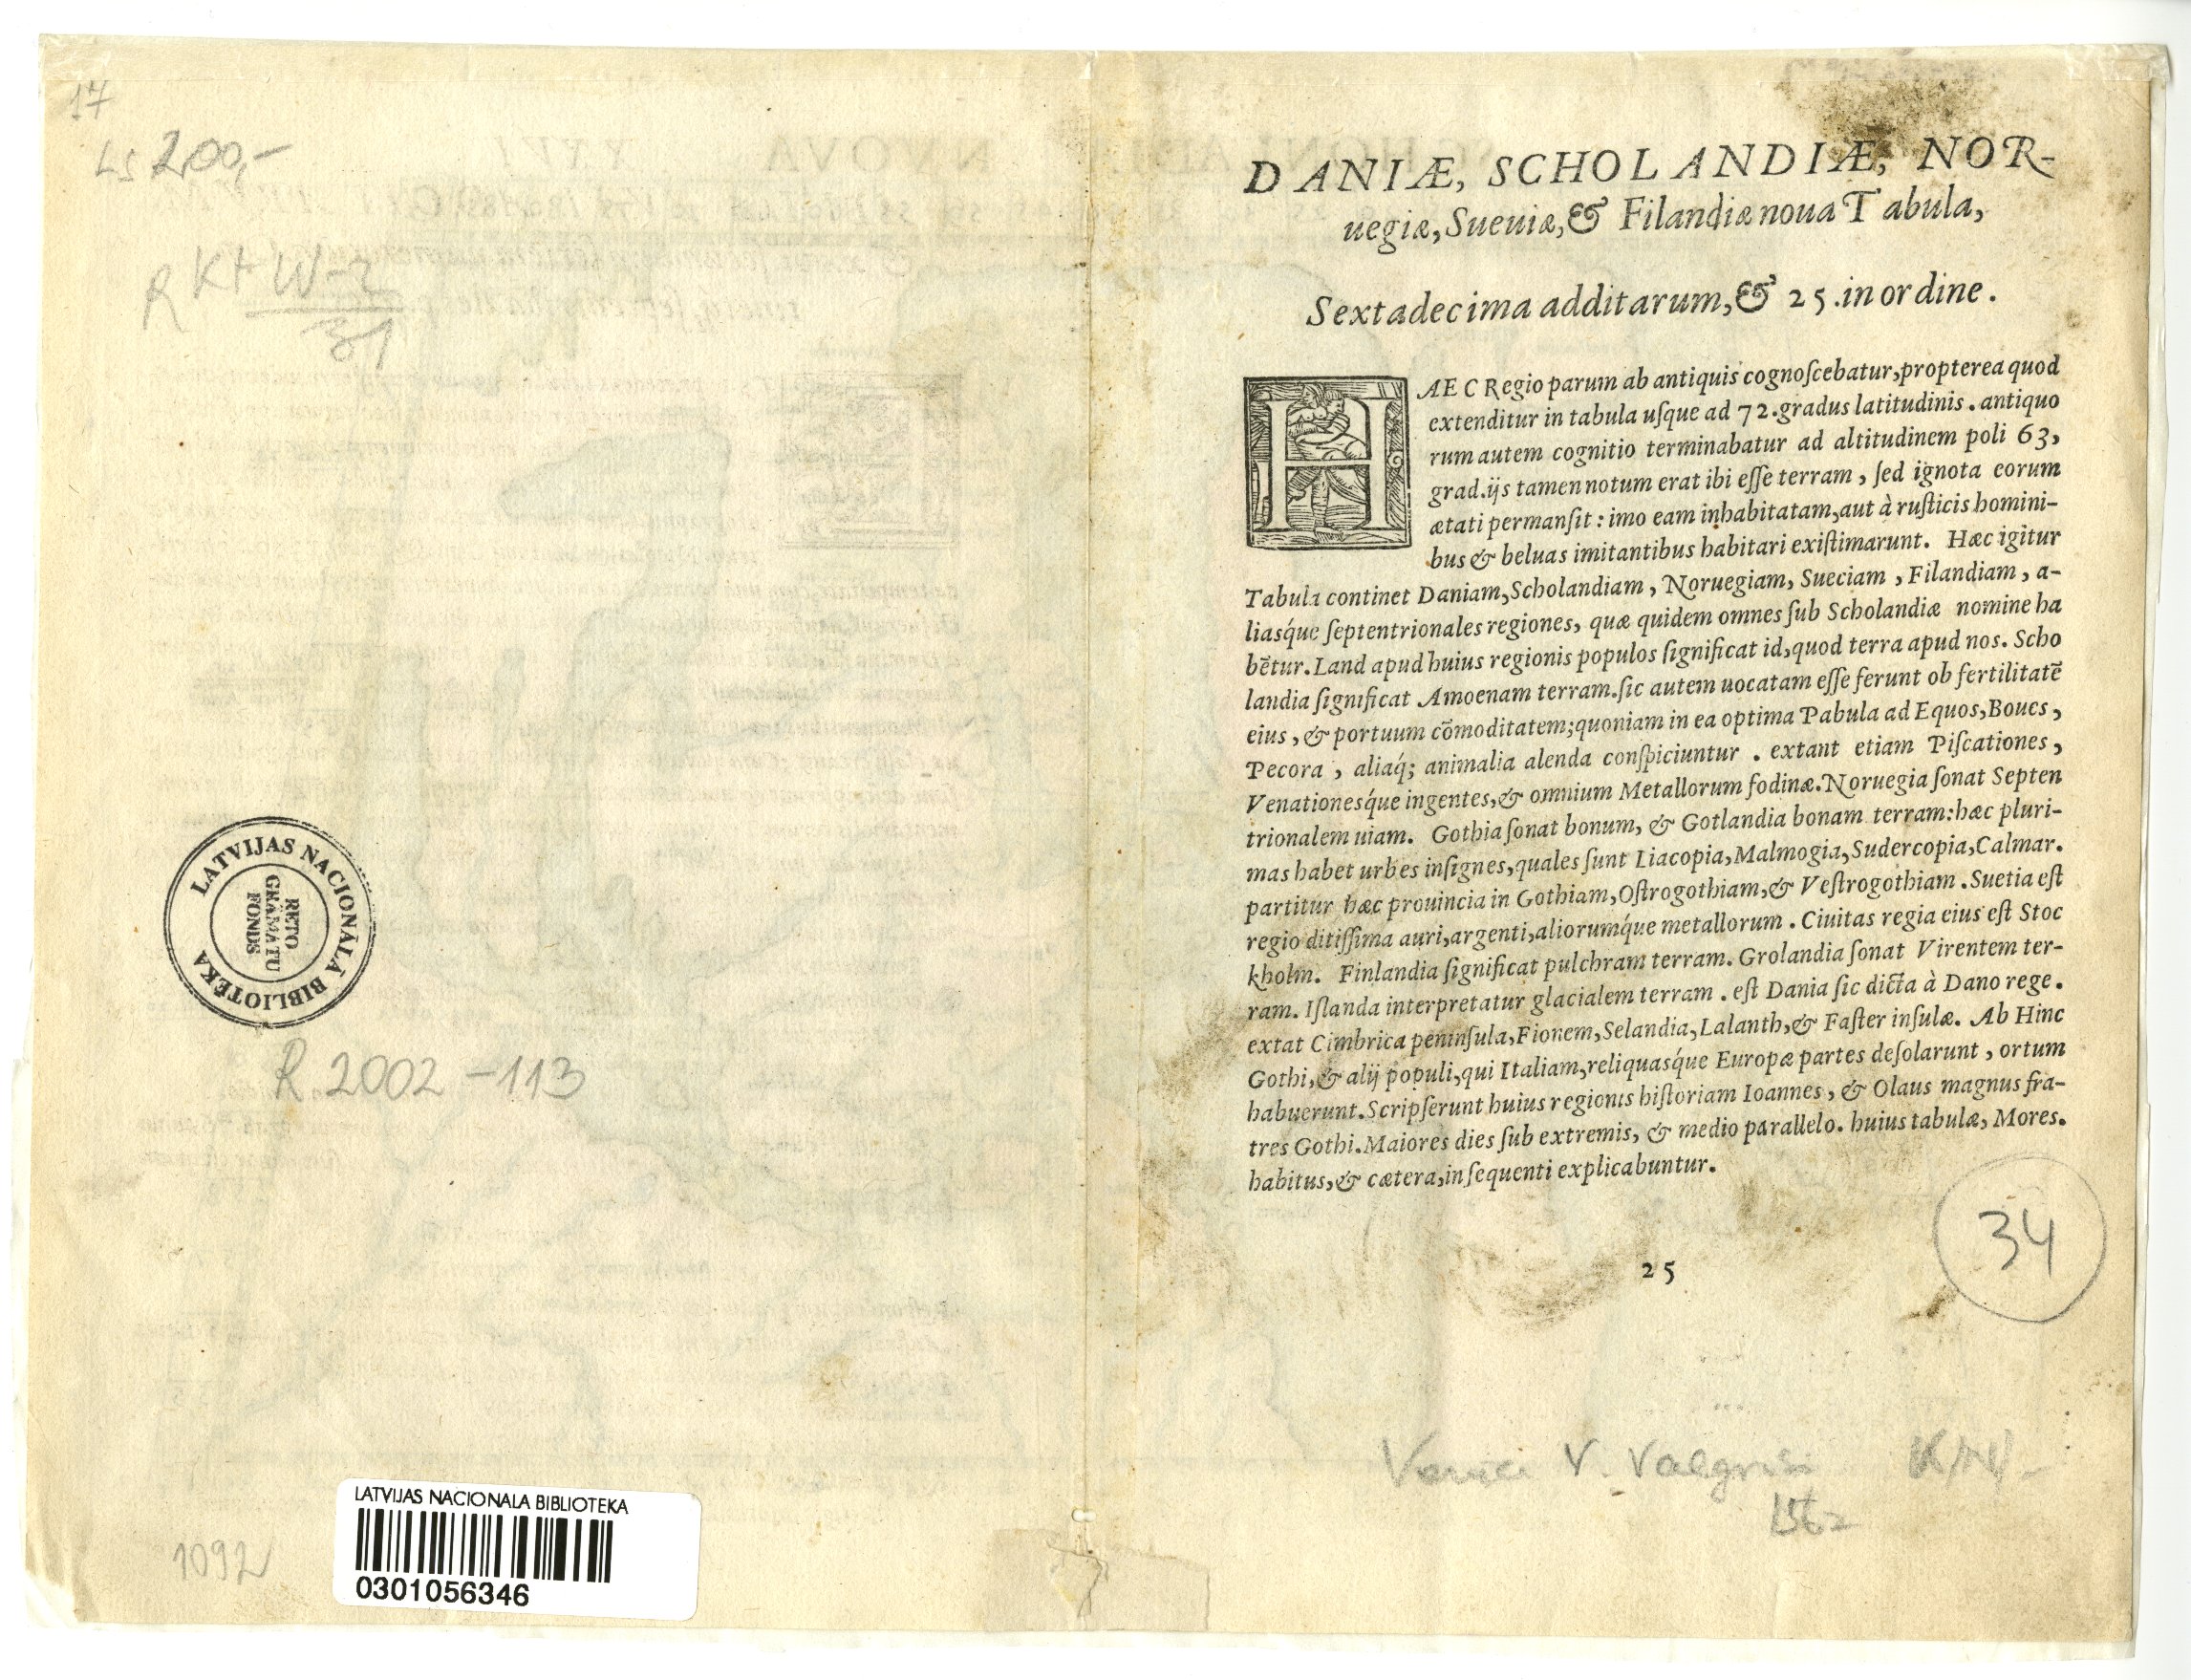 17
Ls 200,-
R K+ W-2
31
LATVIJAS NACIONĀLĀ BIBLIOTĒKA
RETO
GRĀMATU
FONDS
R 2002-113
LATVIJAS NACIONALA BIBLIOTEKA
0301056346
1092
DANIÆ, SCHOLANDIÆ, NOR-
uegiæ, Sueuiæ, & Filandiæ noua Tabula,
Sextadecima additarum, & 25. in ordine.
HAEC Regio parum ab antiquis cognoſcebatur, propterea quod
extenditur in tabula uſque ad 72. gradus latitudinis. antiquo
rum autem cognitio terminabatur ad altitudinem poli 63,
grad. ijs tamen notum erat ibi eſſe terram, ſed ignota eorum
ætati permanſit: imo eam inhabitatam, aut à ruſticis homini-
bus & beluas imitantibus habitari exiſtimarunt. Hæc igitur
Tabula continet Daniam, Scholandiam, Noruegiam, Sueciam, Filandiam, a-
liasq́ue ſeptentrionales regiones, quæ quidem omnes ſub Scholandiæ nomine ha
bẽtur. Land apud huius regionis populos ſignificat id, quod terra apud nos. Scho
landia ſignificat Amoenam terram. ſic autem uocatam eſſe ferunt ob fertilitatẽ
eius, & portuum cõmoditatem; quoniam in ea optima Pabula ad Equos, Boues,
Pecora, aliaq́; animalia alenda conſpiciuntur. extant etiam Piſcationes,
Venationesq́ue ingentes, & omnium Metallorum fodinæ. Noruegia ſonat Septen
trionalem uiam. Gothia ſonat bonum, & Gotlandia bonam terram: hæc pluri-
mas habet urbes inſignes, quales ſunt Liacopia, Malmogia, Sudercopia, Calmar.
partitur hæc prouincia in Gothiam, Oſtrogothiam, & Veſtrogothiam. Suetia eſt
regio ditiſſima auri, argenti, aliorumq́ue metallorum. Ciuitas regia eius eſt Stoc
kholm. Finlandia ſignificat pulchram terram. Grolandia ſonat Virentem ter-
ram. Iſlanda interpretatur glacialem terram. eſt Dania ſic dicta à Dano rege.
extat Cimbrica peninſula, Fionem, Selandia, Lalanth, & Faſter inſulæ. Ab Hinc
Gothi, & alij populi, qui Italiam, reliquasq́ue Europæ partes deſolarunt, ortum
habuerunt. Scripſerunt huius regionis hiſtoriam Ioannes, & Olaus magnus fra-
tres Gothi. Maiores dies ſub extremis, & medio parallelo. huius tabulæ, Mores.
habitus, & cætera, in ſequenti explicabuntur.
34
25
V. Valgrisi K/N/-
1562